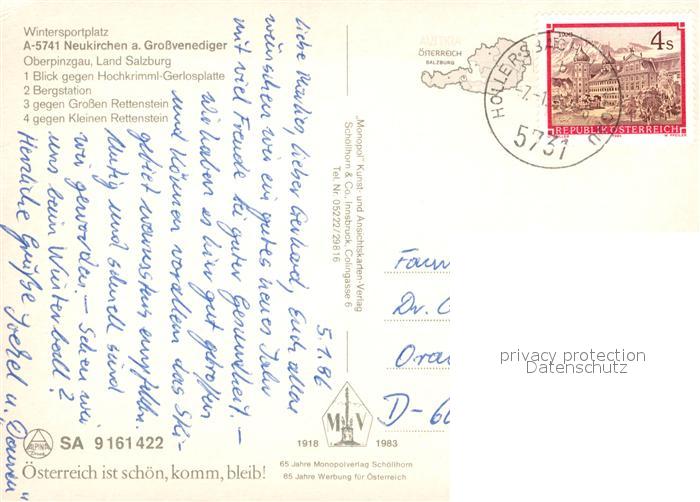 Wintersportplatz
A-5741 Neukirchen a. Großvenediger
Oberpinzgau, Land Salzburg
1 Blick gegen Hochkrimml-Gerlosplatte
2 Bergstation
3 gegen Großen Rettenstein
4 gegen Kleinen Rettenstein
5.1.86
liebe lieber Gerhard, Euch allen
wünschen wir ein gutes neues Jahr
mit viel Freude bei guter Gesundheit. –
Wir haben es hier gut getroffen
und können vor allem das Ski-
gebiet wärmstens empfehlen.
Mutig und schnell sind
wir geworden. – Sehen wir
uns beim Winterball?
Herzliche Grüße
"Monopol" Kunst- und Ansichtskarten-Verlag
Schöllhorn & Co, Innsbruck, Colingasse 6
Tel. Nr. 05222/29816
ÖSTERREICH
SALZBURG
HOLLERSBACH
5731
4 S
REPUBLIK ÖSTERREICH
Fam
Dr.
Oran
D-60
privacy protection
Datenschutz
M V
1918 1983
65 Jahre Monopolverlag Schöllhorn
65 Jahre Werbung für Österreich
ALPINA
SA 9161422
Österreich ist schön, komm, bleib!